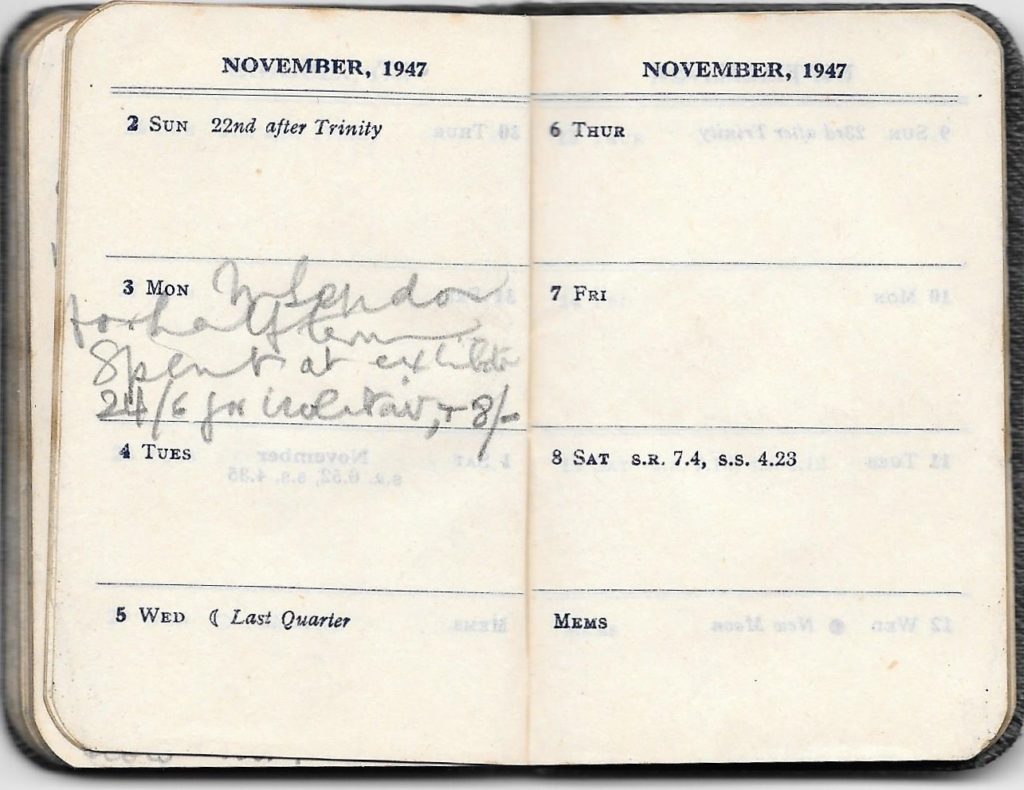 NOVEMBER, 1947
2 SUN 22nd after Trinity
3 MON In London
for half term
Spent at exhibition
24/6 for + 8/-
4 TUES
5 WED ☾ Last Quarter
NOVEMBER, 1947
6 THUR
7 FRI
8 SAT S.R. 7.4, S.S. 4.23
MEMS